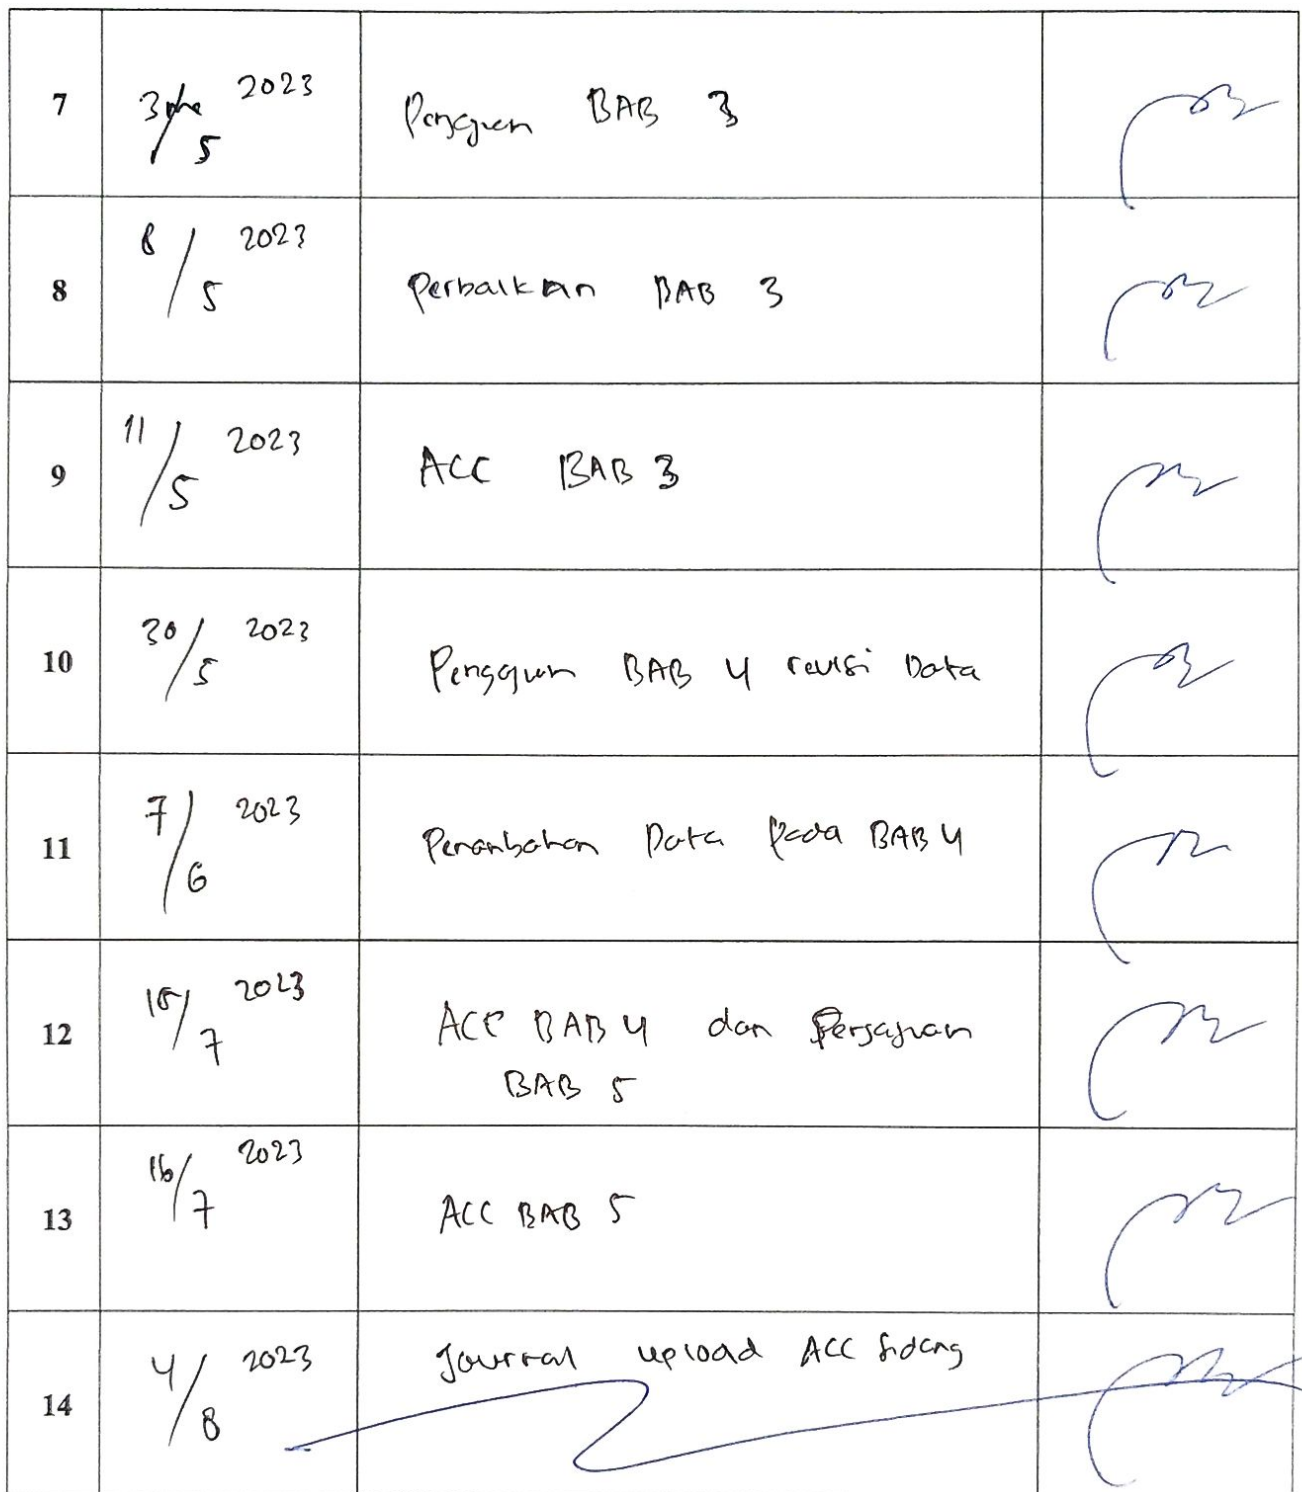 7 3/5 2023 Pengajuan BAB 3
8 8/5 2023 Perbaikan BAB 3
9 11/5 2023 ACC BAB 3
10 30/5 2023 Pengajuan BAB 4 revisi Data
11 7/6 2023 Penambahan Data Pada BAB 4
12 15/7 2023 ACC BAB 4 dan Pengajuan
BAB 5
13 16/7 2023 ACC BAB 5
14 4/8 2023 Journal upload ACC Sidang